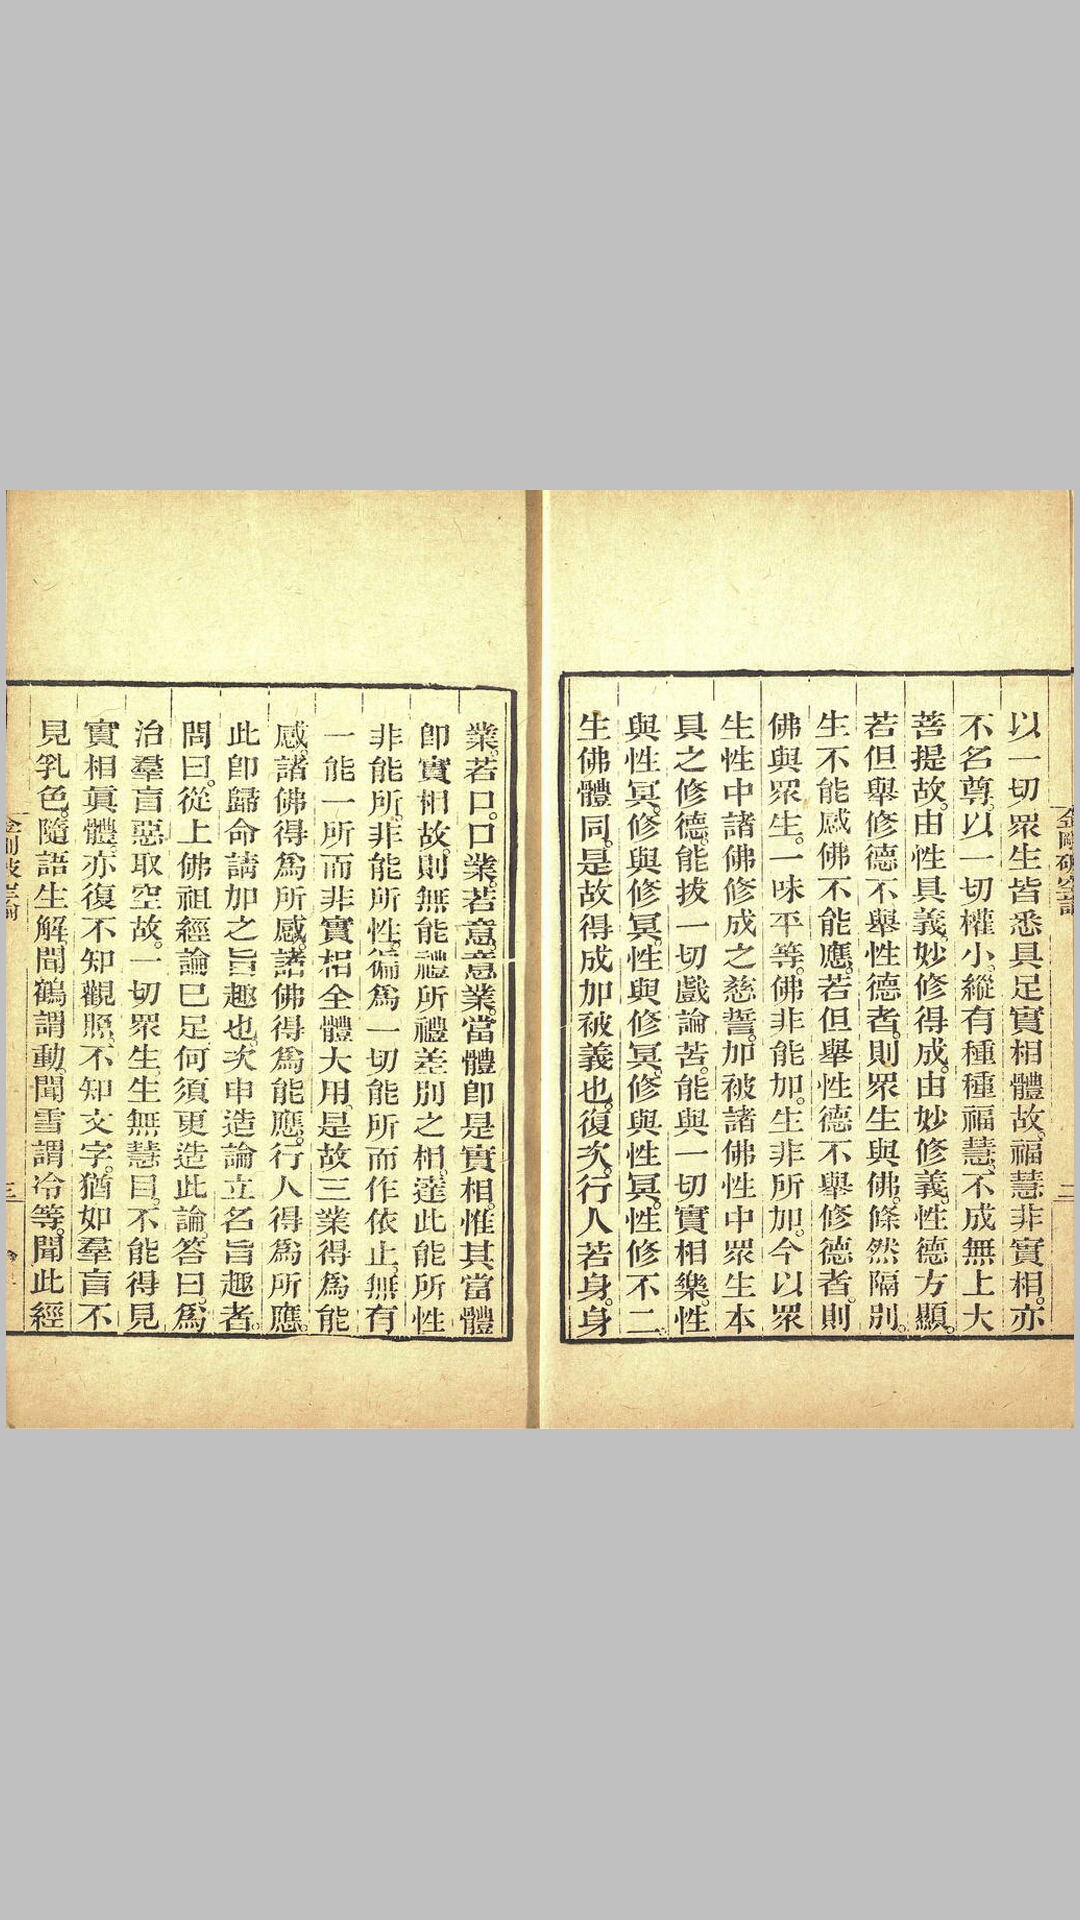 以一切眾生皆悉具足實相體故。福慧非實相。亦
不名尊。以一切權小。縱有種種福慧。不成無上大
菩提故。由性具義。妙修得成。由妙修義。性德方顯。
若但舉修德不舉性德者。則眾生與佛。條然隔別。
生不能感佛不能應。若但舉性德不舉修德者。則
佛與眾生。一味平等。佛非能加。生非所加。今以眾
生性中諸佛修成之慈誓。加被諸佛性中眾生本
具之修德。能拔一切戲論苦。能與一切實相樂。性
與性冥。修與修冥。性與修冥。修與性冥。性修不二。
生佛體同。是故得成加被義也。復次。行人若身。身
業。若口。口業。若意。意業。當體卽是實相。惟其當體
卽實相故。則無能禮所禮差別之相。達此能所性
非能所。非能所性。徧爲一切能所而作依止。無有
一能一所而非實相全體大用。是故三業得爲能
感。諸佛得爲所感。諸佛得爲能應。行人得爲所應。
此卽歸命請加之旨趣也。次申造論立名旨趣者。
問曰。從上佛祖經論已足何須更造此論。答曰。爲
治羣盲惡取空故。一切眾生。生無慧目。不能得見
實相眞體。亦復不知觀照。不知文字。猶如羣盲不
見乳色。隨語生解。聞鶴謂動。聞雪謂冷等。聞此經
三